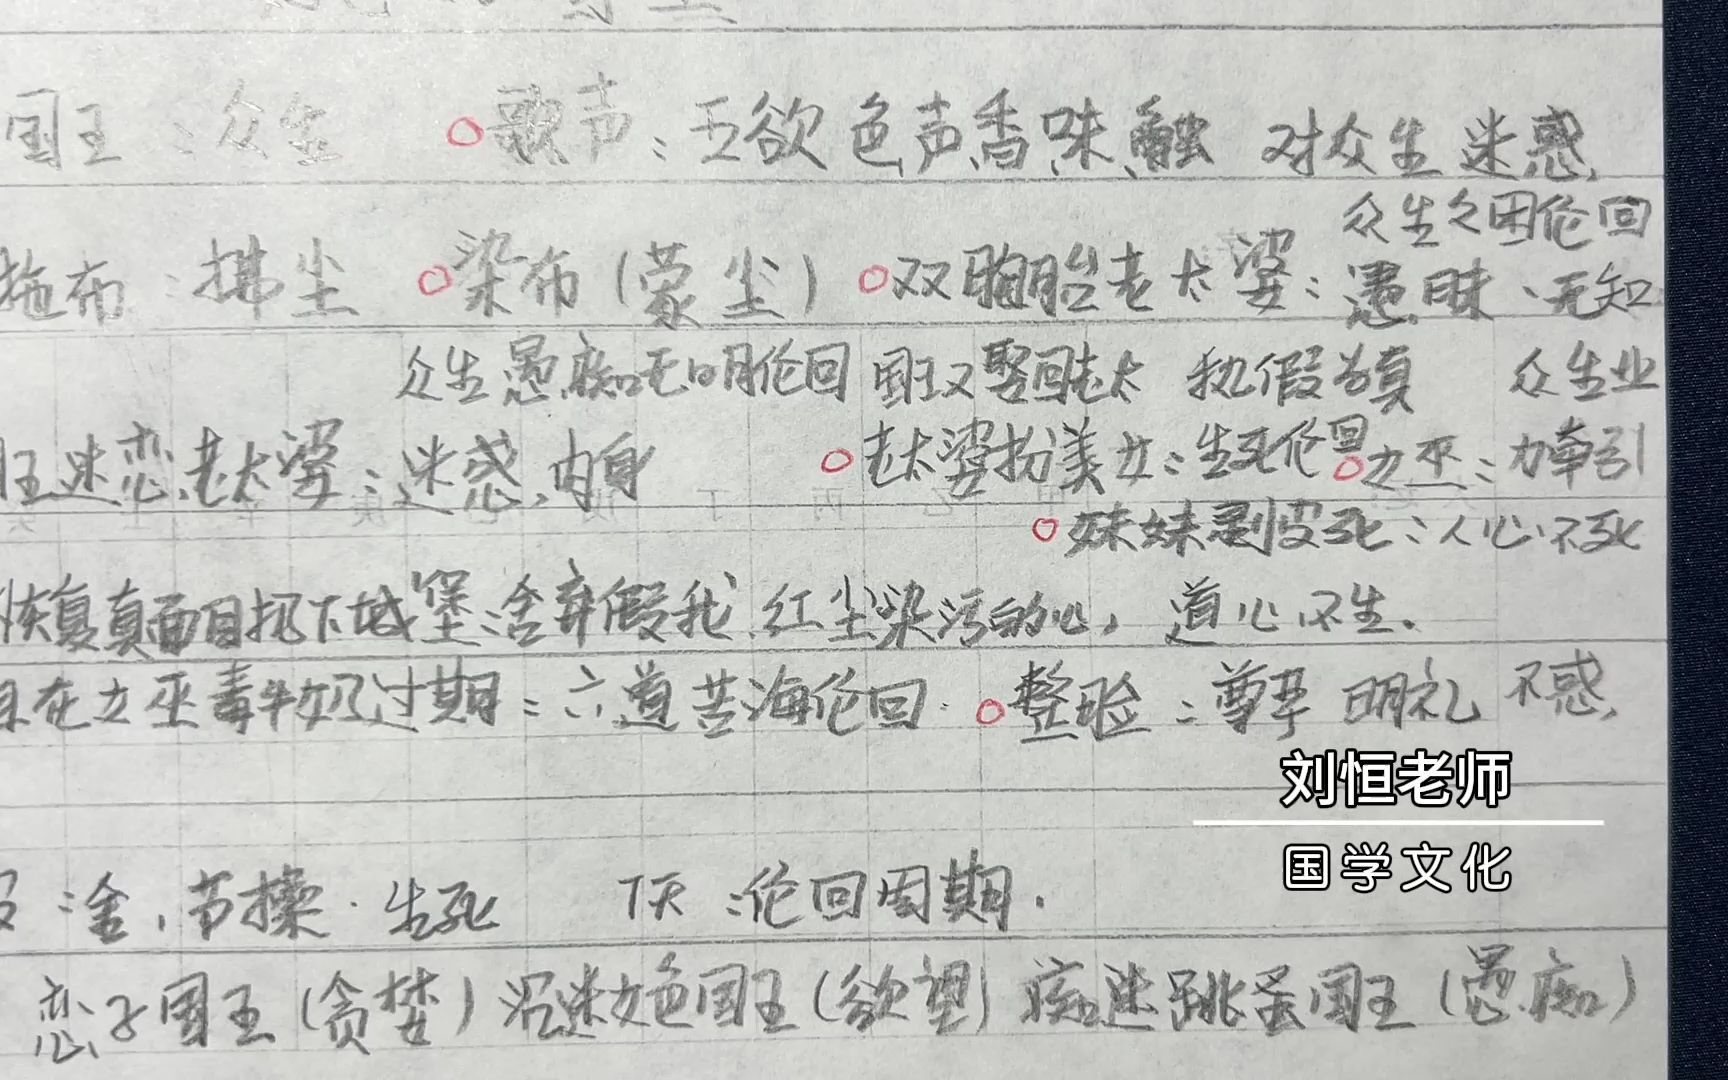 国王：众生 歌声：五欲 色、声、香、味、触 对众生迷惑、
众生之困伦回
拖布：拂尘 染布（蒙尘） 双胞胎老太婆：愚昧、无知
众生愚痴无明伦回 国王又娶回老太 执假为真 众生业
王迷恋老太婆：迷惑、肉身 老太婆扮美女：生死伦回 女巫：力牵引
妹妹剥皮死：人心不死
恢复真面目扔下城堡：舍弃假我、红尘染污的心，道心不生.
在女巫毒牛奶过期：六道苦海伦回. 整 ：尊 明礼 不惑、
：金，节操. 生死 下天：伦回周期.
恋子国王（贪婪）沉迷女色国王（欲望）痴迷跳蚤国王（愚痴）
刘恒老师
国学文化